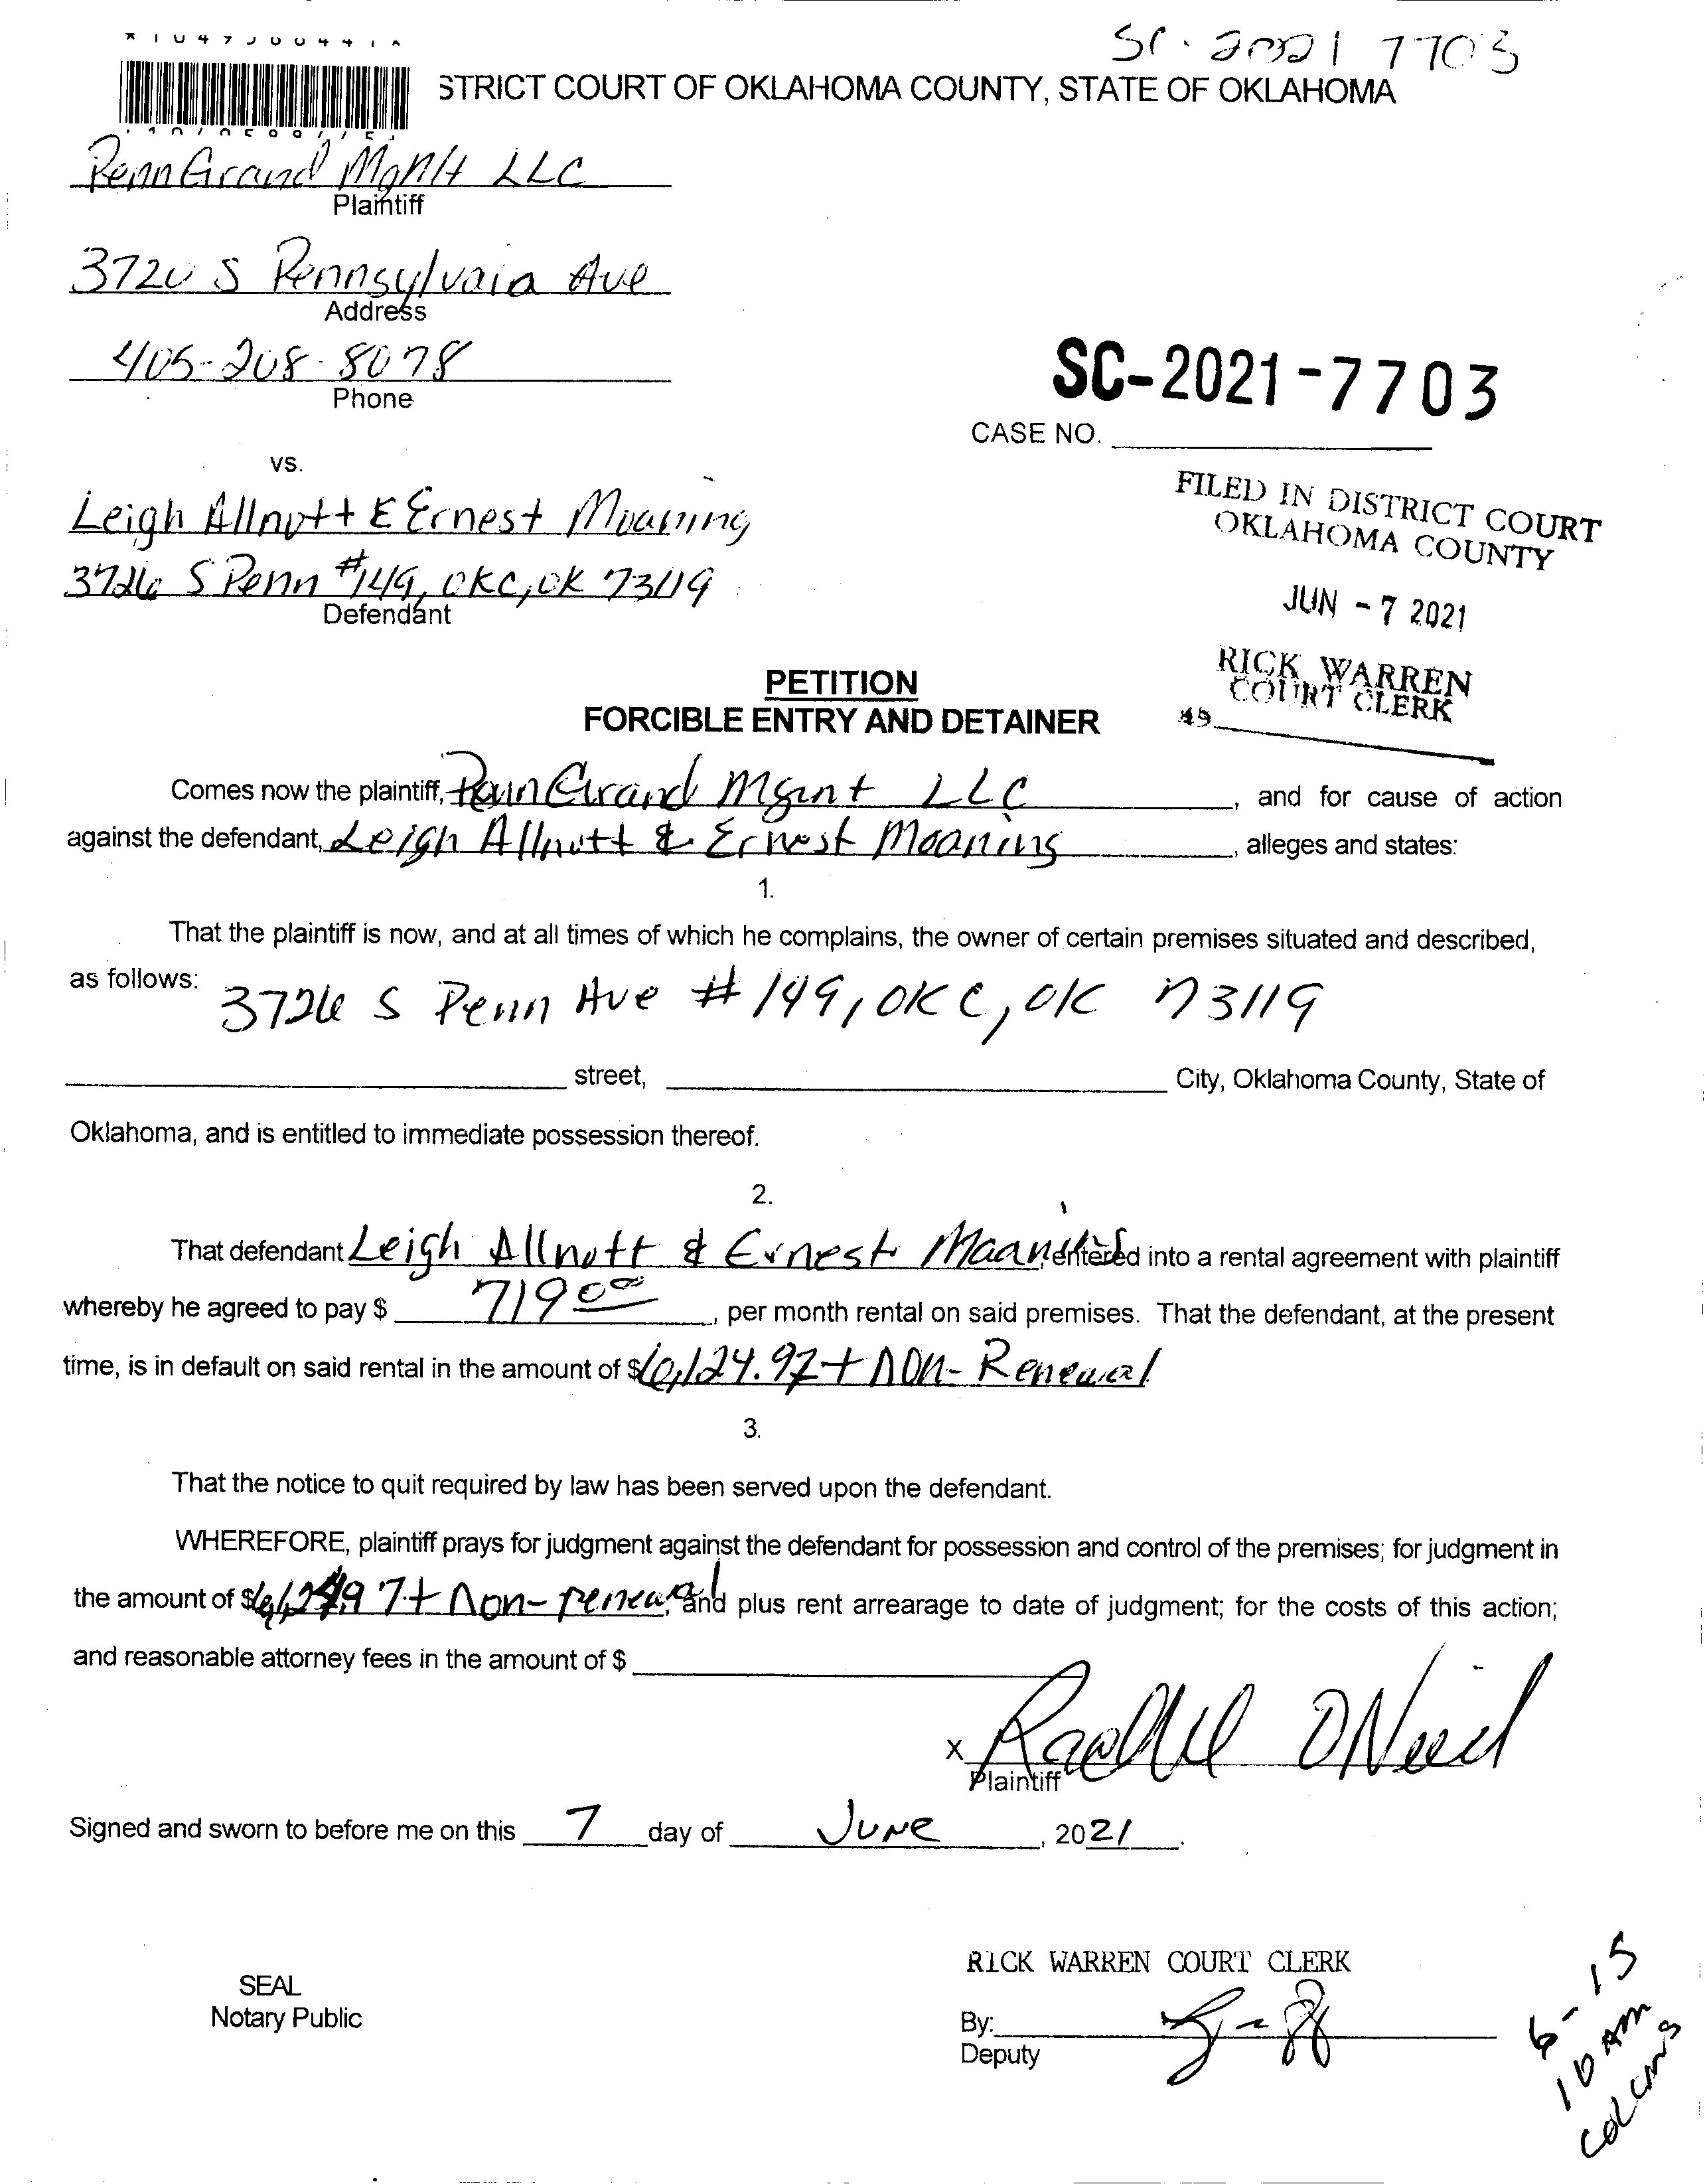 SC-2021 7703
STRICT COURT OF OKLAHOMA COUNTY, STATE OF OKLAHOMA
Penn Grand Mgmt LLC
Plaintiff
3720 S Pennsylvaia Ave
Address
405-208-8078
Phone
SC-2021-7703
CASE NO.
vs.
Leigh Allnutt & Ernest Moaning
3726 S Penn #149, OKC, OK 73119
Defendant
FILED IN DISTRICT COURT
OKLAHOMA COUNTY
JUN - 7 2021
RICK WARREN
COURT CLERK
PETITION
FORCIBLE ENTRY AND DETAINER
Comes now the plaintiff, Penn Grand Mgmt LLC, and for cause of action
against the defendant, Leigh Allnutt & Ernest Moaning, alleges and states:
1.
That the plaintiff is now, and at all times of which he complains, the owner of certain premises situated and described,
as follows:
3726 S Penn Ave #149, OKC, OK 73119
street, City, Oklahoma County, State of
Oklahoma, and is entitled to immediate possession thereof.
2.
That defendant Leigh Allnutt & Ernest Moaning, entered into a rental agreement with plaintiff
whereby he agreed to pay $ 719.00, per month rental on said premises. That the defendant, at the present
time, is in default on said rental in the amount of $6,124.97 + Non-Renewal
3.
That the notice to quit required by law has been served upon the defendant.
WHEREFORE, plaintiff prays for judgment against the defendant for possession and control of the premises; for judgment in
the amount of $6,124.97 + Non-renewal, and plus rent arrearage to date of judgment; for the costs of this action;
and reasonable attorney fees in the amount of $
x
Plaintiff
Signed and sworn to before me on this 7 day of June, 2021.
SEAL
Notary Public
RICK WARREN COURT CLERK
By:
Deputy
6-15
10 AM